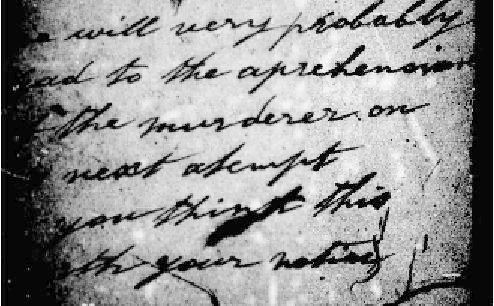 will very probably
ad to the aprehension
the murderer on
next atempt
you think this
your notice